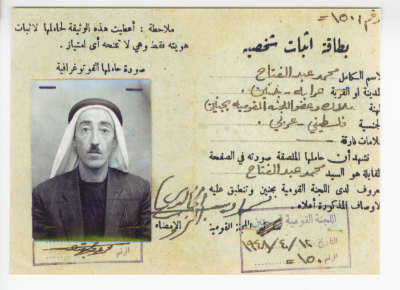 رقم ١٥٠١=
ملاحظة : أعطيت هذه الوثيقة لحاملها لاثبات
هويته فقط وهي لا تمنحه أي امتياز .
صورة حاملها الفوتوغرافية
بطاقة اثبات شخصيه
الاسم الكامل محمد عبد الفتاح
المدينة او القرية عرابه - جنين
المهنة ملاك وعضو اللجنه القوميه بجنين
الجنسية فلسطيني - عربي .
علامات فارقة
تشهد أن حاملها الملصقة صورته في الصفحة
المقابلة هو السيد محمد عبد الفتاح
معروف لدى اللجنة القومية بجنين وتنطبق عليه
الاوصاف المذكورة أعلاه .
اللجنة القومية
الامضاء
اللجنة القومية
التاريخ ١٩٤٨/٤/١٢
الرقم ١٥٠=
الرقم